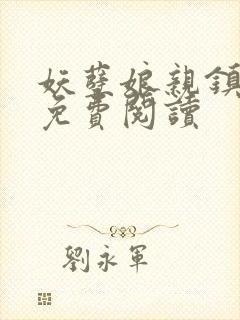 妖孽娘親鎮
免費閱讀
劉永軍